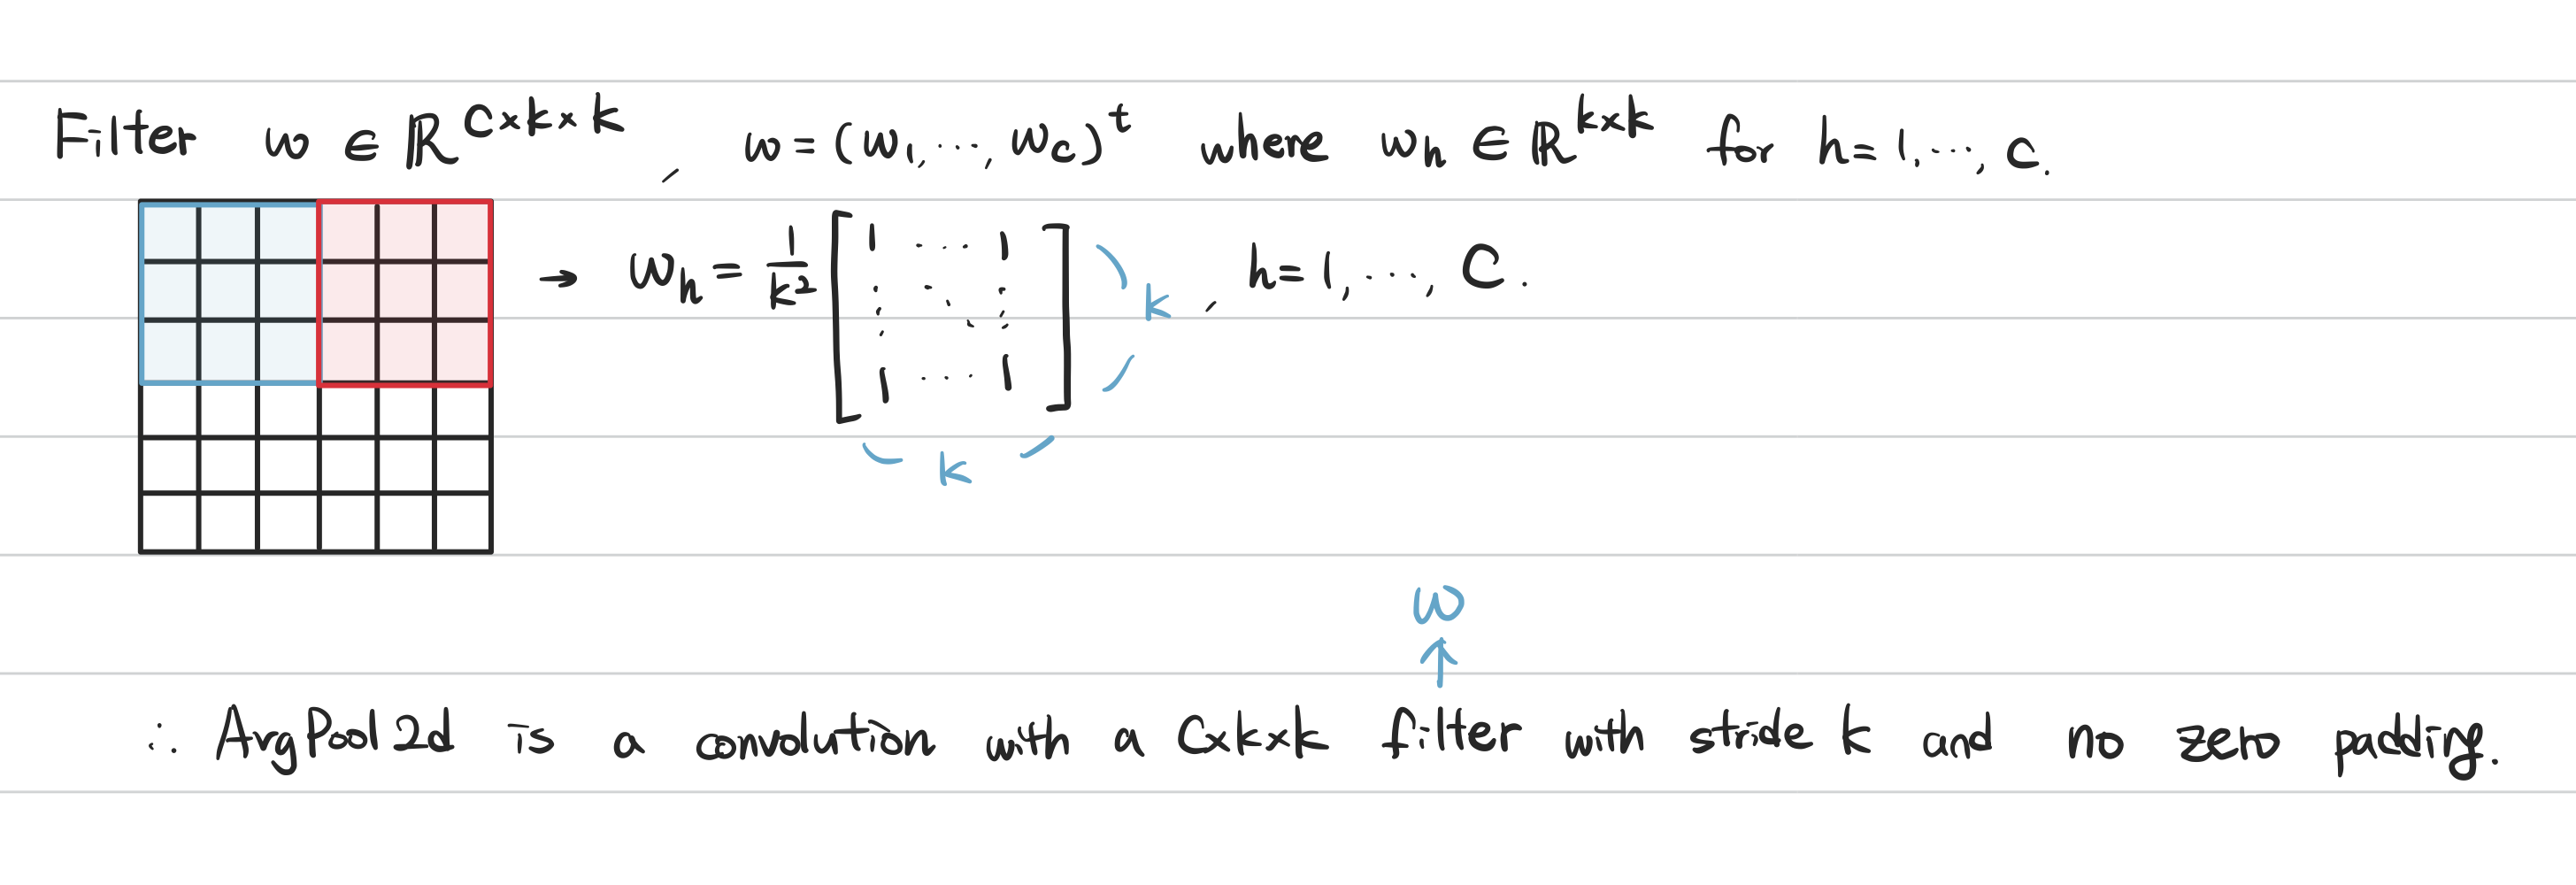 Filter w ∈ ℝ^{C×k×k}, w = (w₁, ⋯, w_C)^t where w_h ∈ ℝ^{k×k} for h = 1, ⋯, C.
→ w_h = 1/k² [1 ⋯ 1
⋮ ⋱ ⋮
1 ⋯ 1] k, h = 1, ⋯, C.
k
w
↑
∴ AvgPool2d is a convolution with a C×k×k filter with stride k and no zero padding.